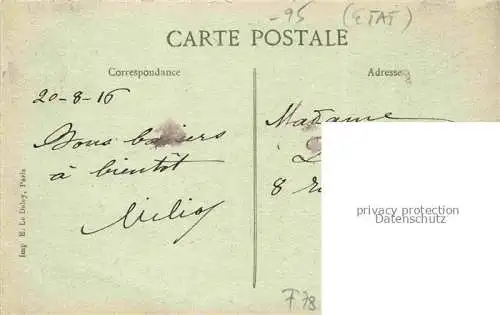 -95 (ETAT)
CARTE POSTALE
Correspondance
Adresse
20-8-16
Bons baisers
à bientôt
Madame
8
privacy protection
Datenschutz
F78
Imp E. Le Deley, Paris